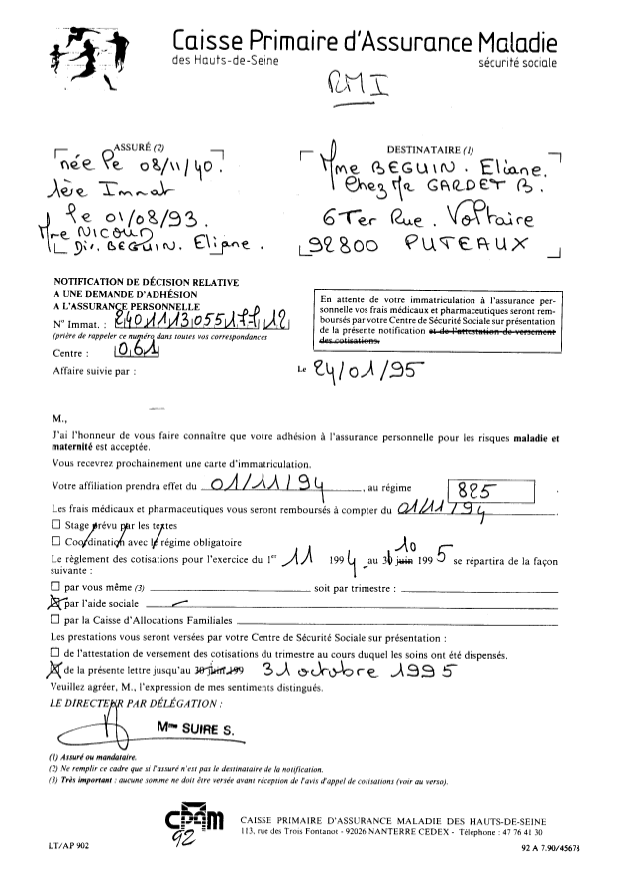 Caisse Primaire d'Assurance Maladie
des Hauts-de-Seine
sécurité sociale
RMI
ASSURÉ (2)
née le 08/11/40.
1ère Immat
le 01/08/93.
Mme NICOUD
Div. BEGUIN. Eliane.
DESTINATAIRE (1)
Mme BEGUIN. Eliane.
Chez Mr GARDET B.
6 Ter Rue. Voltaire
92800 PUTEAUX
NOTIFICATION DE DÉCISION RELATIVE
A UNE DEMANDE D'ADHÉSION
A L'ASSURANCE PERSONNELLE
N° Immat. :
(prière de rappeler ce numéro dans toutes vos correspondances
Centre : 061
Affaire suivie par :
En attente de votre immatriculation à l'assurance per-
sonnelle vos frais médicaux et pharmaceutiques seront rem-
boursés par votre Centre de Sécurité Sociale sur présentation
de la présente notification et de l'attestation de versement
des cotisations.
Le 24/01/95
M.,
J'ai l'honneur de vous faire connaître que votre adhésion à l'assurance personnelle pour les risques maladie et
maternité est acceptée.
Vous recevrez prochainement une carte d'immatriculation.
Votre affiliation prendra effet du 01/11/94, au régime 825
Les frais médicaux et pharmaceutiques vous seront remboursés à compter du 01/11/94
Stage prévu par les textes
Coordination avec le régime obligatoire
Le règlement des cotisations pour l'exercice du 1er 11 1994 au 30 juin 10 1995 se répartira de la façon
suivante :
par vous même (3) soit par trimestre :
par l'aide sociale
par la Caisse d'Allocations Familiales
Les prestations vous seront versées par votre Centre de Sécurité Sociale sur présentation :
de l'attestation de versement des cotisations du trimestre au cours duquel les soins ont été dispensés.
de la présente lettre jusqu'au 30 juin 199 31 octobre 1995
Veuillez agréer, M., l'expression de mes sentiments distingués.
LE DIRECTEUR PAR DÉLÉGATION :
Mme SUIRE S.
(1) Assuré ou mandataire.
(2) Ne remplir ce cadre que si l'assuré n'est pas le destinataire de la notification.
(3) Très important : aucune somme ne doit être versée avant réception de l'avis d'appel de cotisations (voir au verso).
cpam
92
CAISSE PRIMAIRE D'ASSURANCE MALADIE DES HAUTS-DE-SEINE
113, rue des Trois Fontanot - 92026 NANTERRE CEDEX - Téléphone : 47 76 41 30
LT/AP 902
92 A 7.90/45673